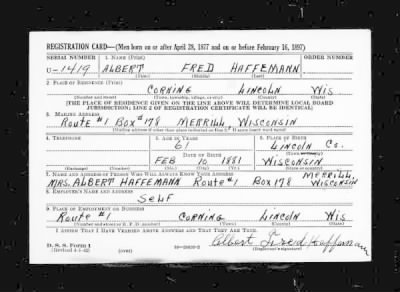 REGISTRATION CARD—(Men born on or after April 28, 1877 and on or before February 16, 1897)
SERIAL NUMBER 1. NAME (Print) ORDER NUMBER
U-1419 ALBERT FRED HAFFEMANN
(First) (Middle) (Last)
2. PLACE OF RESIDENCE (Print)
CORNING LINCOLN WIS
(Number and street) (Town, township, village, or city) (County) (State)
[THE PLACE OF RESIDENCE GIVEN ON THE LINE ABOVE WILL DETERMINE LOCAL BOARD
JURISDICTION; LINE 2 OF REGISTRATION CERTIFICATE WILL BE IDENTICAL]
3. MAILING ADDRESS
ROUTE #1 BOX #178 MERRILL, WISCONSIN
[Mailing address if other than place indicated on line 2. If same insert word same]
4. TELEPHONE 5. AGE IN YEARS 6. PLACE OF BIRTH
61 LINCOLN CO.
DATE OF BIRTH (Town or county)
FEB 10, 1881 WISCONSIN
(Exchange) (Number) (Mo.) (Day) (Yr.) (State or country)
7. NAME AND ADDRESS OF PERSON WHO WILL ALWAYS KNOW YOUR ADDRESS
MERRILL,
MRS. ALBERT HAFFEMANN ROUTE #1 BOX 178 WISCONSIN
8. EMPLOYER'S NAME AND ADDRESS
SELF
9. PLACE OF EMPLOYMENT OR BUSINESS
ROUTE #1 CORNING LINCOLN WIS
(Number and street or R. F. D. number) (Town) (County) (State)
I AFFIRM THAT I HAVE VERIFIED ABOVE ANSWERS AND THAT THEY ARE TRUE.
D. S. S. Form 1
(Revised 4-1-42) (over) Albert Fred Haffemann
(Registrant's signature)